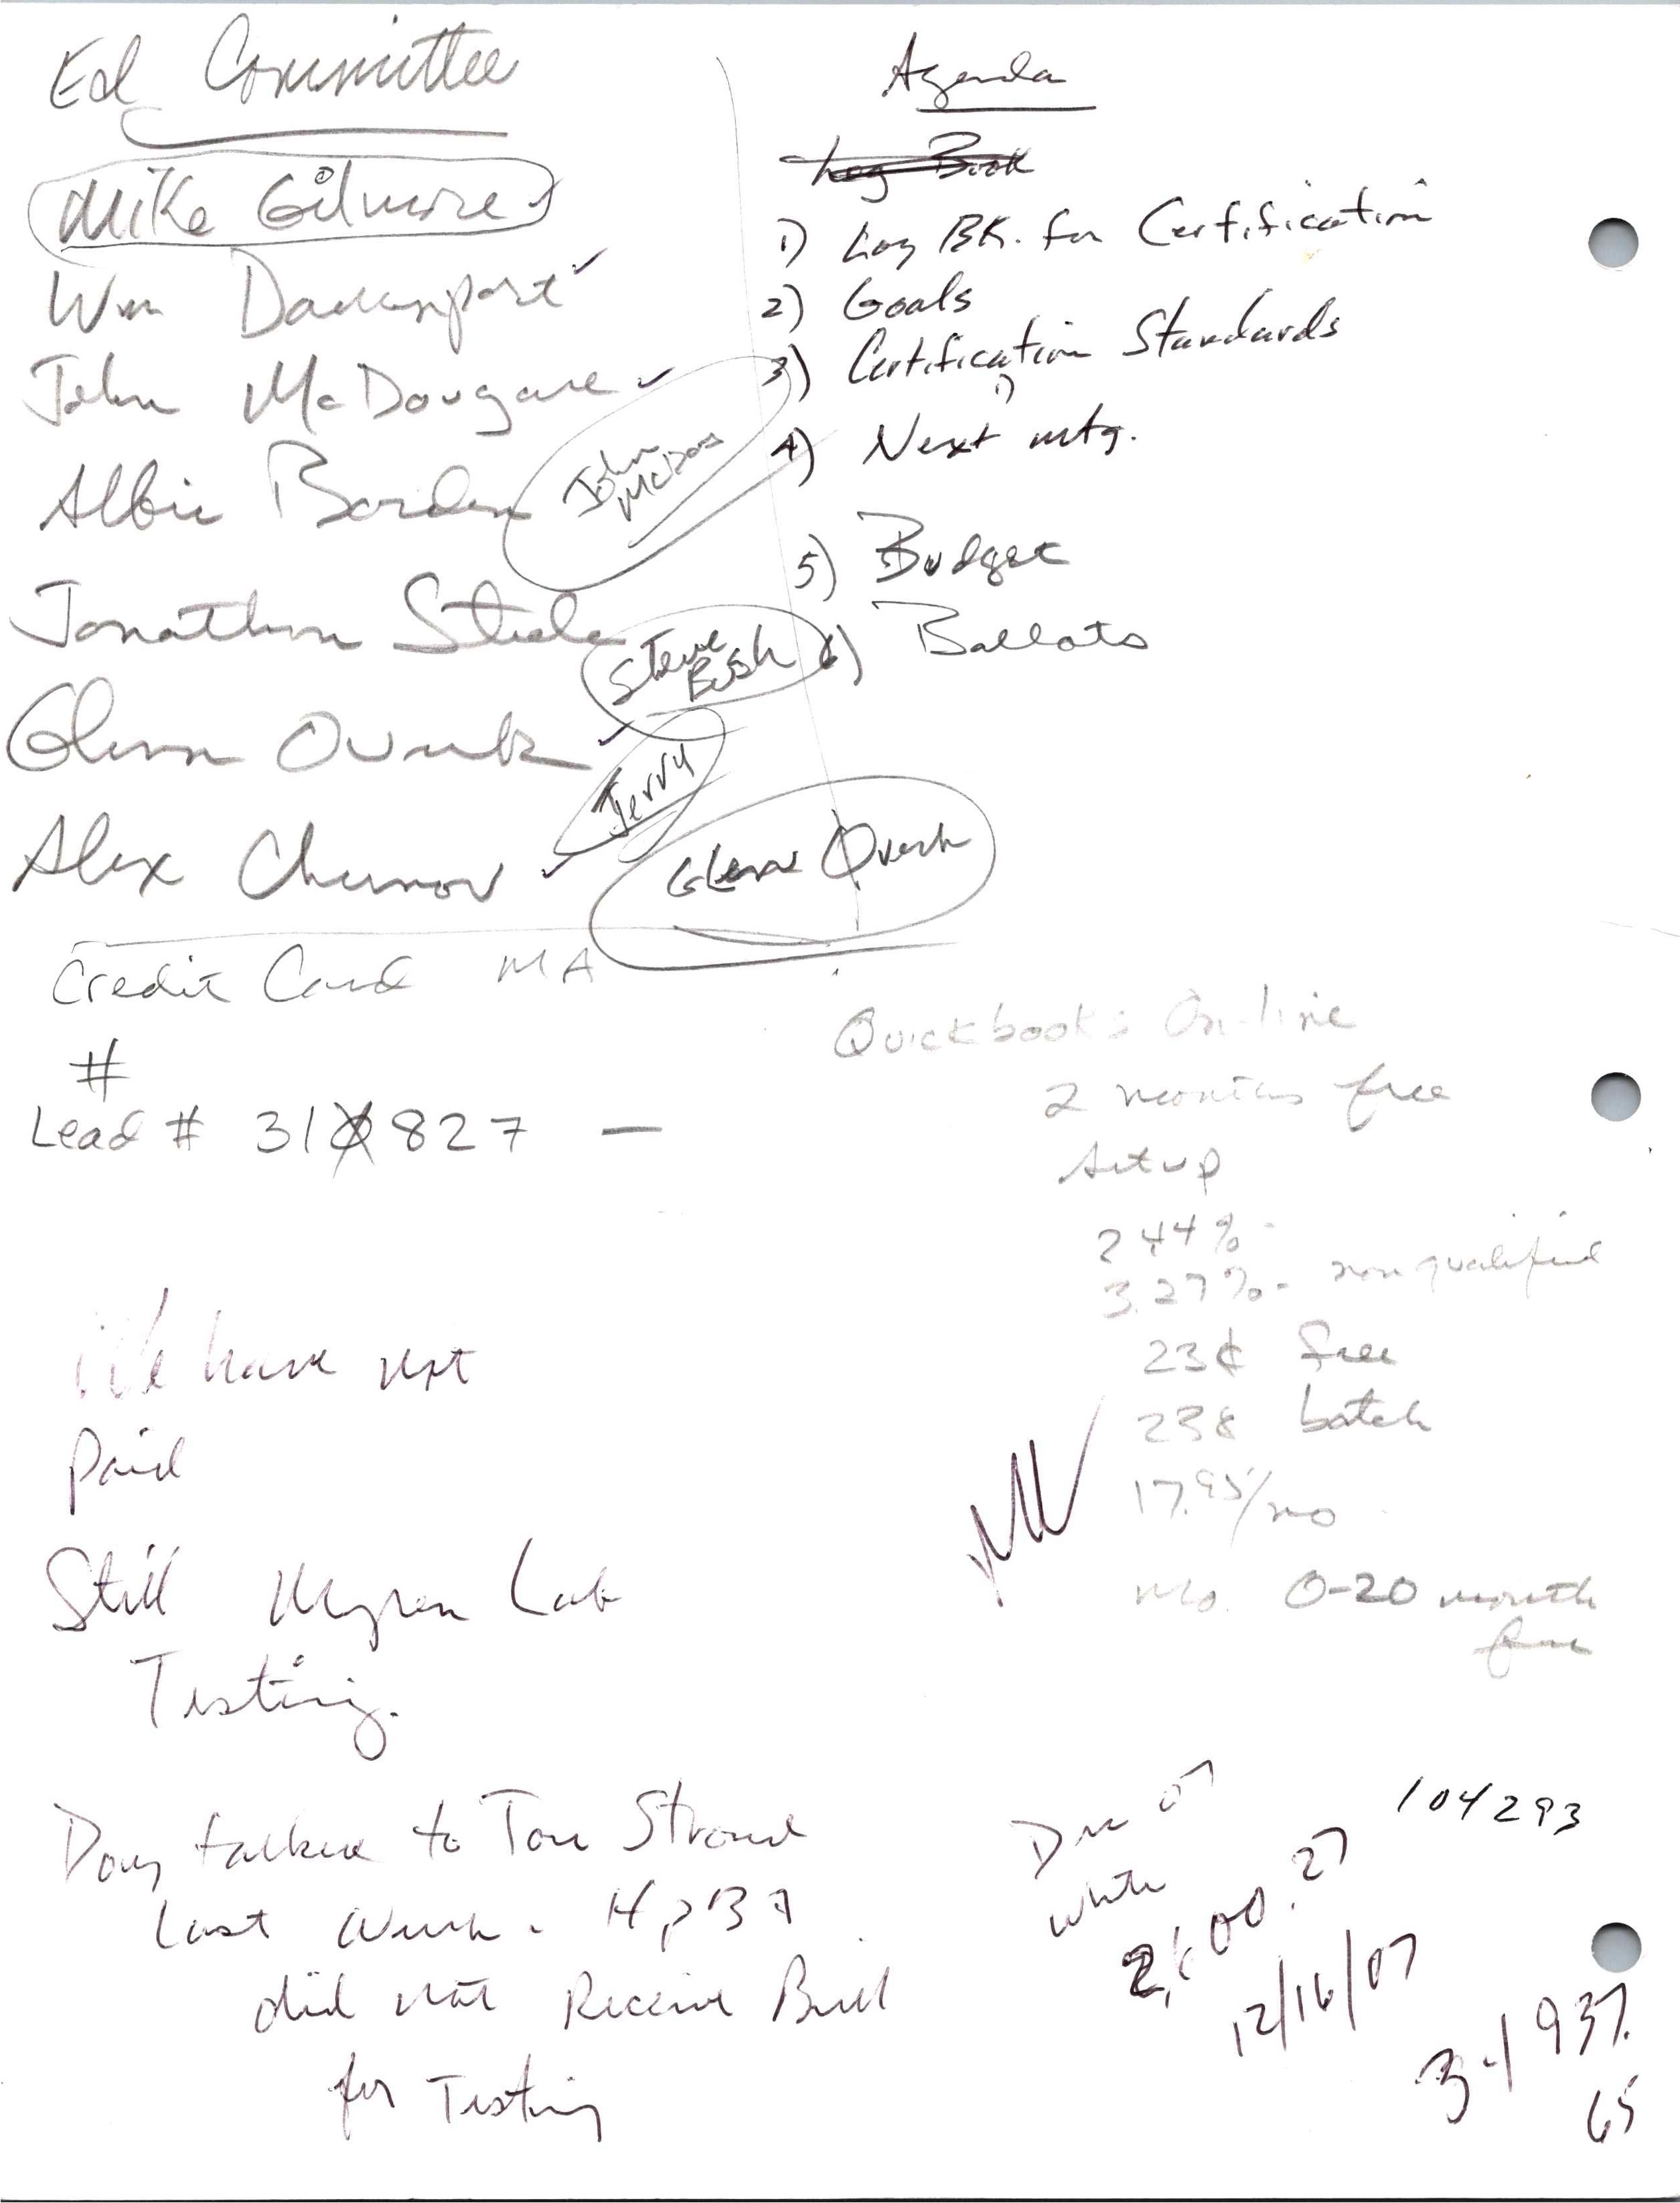 Ed Committee
Mike Gilmore
Wm Davenport
John McDougall
Albie Borden
John
McDoo
Jonathan Steele
Steve
Bush
Glenn Overk
Jerry
Alex Chernov
Glenn Overk
Agenda
Log Book
1) Log BK. for Certification
2) Goals
3) Certification Standards
1)
4) Next mtg.
5) Budget
6) Ballots
Credit Card MA
#
Lead # 31 827 —
Quickbooks On-line
2 months free
setup
2.44%
3.27% - nonqualified
23¢ free
23¢ batch
17.95/mo
Mo. 0-20 month
We have not
Paid
Still Myren Lab
Testing.
Doug talked to Tom Stroud
Last week. HPBA
did not Receive Bill
for Testing
Dec 07
104293
12/16/07
937.
65